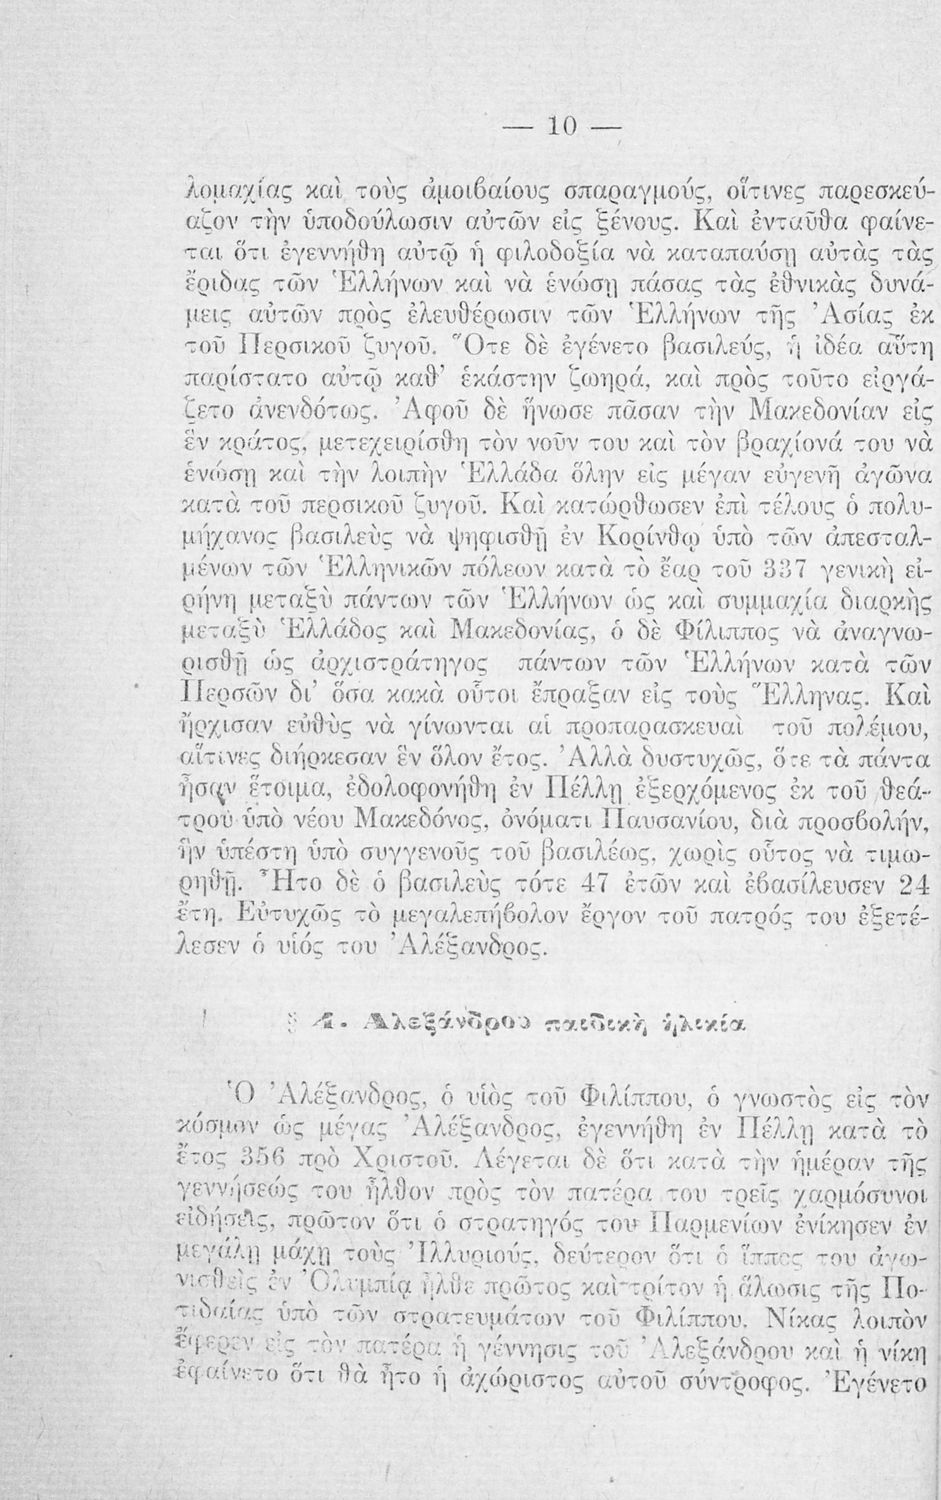 — 10 —
λομαχίας καὶ τοὺς ἀμοιβαίους σπαραγμούς, οἵτινες παρεσκεύ-
αζον τὴν ὑποδούλωσιν αὐτῶν εἰς ξένους. Καὶ ἐνταῦθα φαίνε-
ται ὅτι ἐγεννήθη αὐτῷ ἡ φιλοδοξία νὰ καταπαύσῃ αὐτὰς τὰς
ἔριδας τῶν Ἑλλήνων καὶ νὰ ἑνώσῃ πάσας τὰς ἐθνικὰς δυνά-
μεις αὐτῶν πρὸς ἐλευθέρωσιν τῶν Ἑλλήνων τῆς Ἀσίας ἐκ
τοῦ Περσικοῦ ζυγοῦ. Ὅτε δὲ ἐγένετο βασιλεύς, ἡ ἰδέα αὕτη
παρίστατο αὐτῷ καθ’ ἑκάστην ζωηρά, καὶ πρὸς τοῦτο εἰργά-
ζετο ἀνενδότως. Ἀφοῦ δὲ ἥνωσε πᾶσαν τὴν Μακεδονίαν εἰς
ἓν κράτος, μετεχειρίσθη τὸν νοῦν του καὶ τὸν βραχίονά του νὰ
ἑνώσῃ καὶ τὴν λοιπὴν Ἑλλάδα ὅλην εἰς μέγαν εὐγενῆ ἀγῶνα
κατὰ τοῦ περσικοῦ ζυγοῦ. Καὶ κατώρθωσεν ἐπὶ τέλους ὁ πολυ-
μήχανος βασιλεὺς νὰ ψηφισθῇ ἐν Κορίνθῳ ὑπὸ τῶν ἀπεσταλ-
μένων τῶν Ἑλληνικῶν πόλεων κατὰ τὸ ἔαρ τοῦ 337 γενικὴ εἰ-
ρήνη μεταξὺ πάντων τῶν Ἑλλήνων ὡς καὶ συμμαχία διαρκὴς
μεταξὺ Ἑλλάδος καὶ Μακεδονίας, ὁ δὲ Φίλιππος νὰ ἀναγνω-
ρισθῇ ὡς ἀρχιστράτηγος πάντων τῶν Ἑλλήνων κατὰ τῶν
Περσῶν δι’ ὅσα κακὰ οὗτοι ἔπραξαν εἰς τοὺς Ἕλληνας. Καὶ
ἤρχισαν εὐθὺς νὰ γίνωνται αἱ προπαρασκευαὶ τοῦ πολέμου,
αἵτινες διήρκεσαν ἓν ὅλον ἔτος. Ἀλλὰ δυστυχῶς, ὅτε τὰ πάντα
ἦσαν ἕτοιμα, ἐδολοφονήθη ἐν Πέλλῃ ἐξερχόμενος ἐκ τοῦ θεά-
τρου ὑπὸ νέου Μακεδόνος, ὀνόματι Παυσανίου, διὰ προσβολήν,
ἣν ὑπέστη ὑπὸ συγγενοῦς τοῦ βασιλέως, χωρὶς οὗτος νὰ τιμω-
ρηθῇ. Ἦτο δὲ ὁ βασιλεὺς τότε 47 ἐτῶν καὶ ἐβασίλευσεν 24
ἔτη. Εὐτυχῶς τὸ μεγαλεπήβολον ἔργον τοῦ πατρός του ἐξετέ-
λεσεν ὁ υἱός του Ἀλέξανδρος.
§ 4. Ἀλεξάνδρου παιδικὴ ἡλικία
Ὁ Ἀλέξανδρος, ὁ υἱὸς τοῦ Φιλίππου, ὁ γνωστὸς εἰς τὸν
κόσμον ὡς μέγας Ἀλέξανδρος, ἐγεννήθη ἐν Πέλλῃ κατὰ τὸ
ἔτος 356 πρὸ Χριστοῦ. Λέγεται δὲ ὅτι κατὰ τὴν ἡμέραν τῆς
γεννήσεώς του ἦλθον πρὸς τὸν πατέρα του τρεῖς χαρμόσυνοι
εἰδήσεις, πρῶτον ὅτι ὁ στρατηγός του Παρμενίων ἐνίκησεν ἐν
μεγάλῃ μάχῃ τοὺς Ἰλλυριούς, δεύτερον ὅτι ὁ ἵππος του ἀγω-
νισθεὶς ἐν Ὀλυμπίᾳ ἦλθε πρῶτος καὶ τρίτον ἡ ἅλωσις τῆς Πο-
τιδαίας ὑπὸ τῶν στρατευμάτων τοῦ Φιλίππου. Νίκας λοιπὸν
ἔφερεν εἰς τὸν πατέρα ἡ γέννησις τοῦ Ἀλεξάνδρου καὶ ἡ νίκη
ἐφαίνετο ὅτι θὰ ἦτο ἡ ἀχώριστος αὐτοῦ σύντροφος. Ἐγένετο